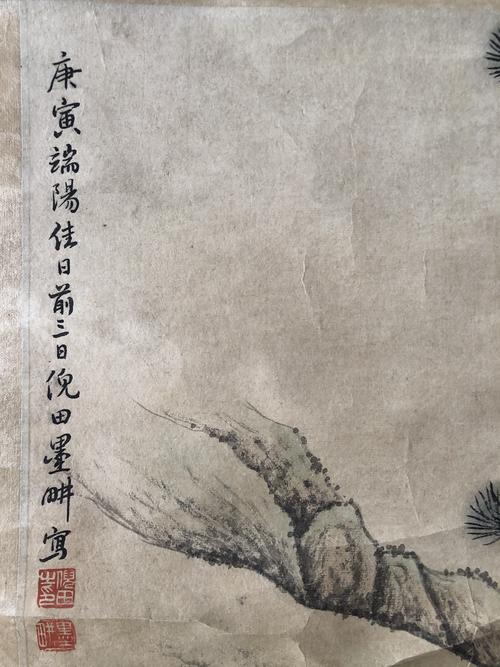 庚寅端陽佳日前三日倪田墨畊寫
倪田之印
墨畊